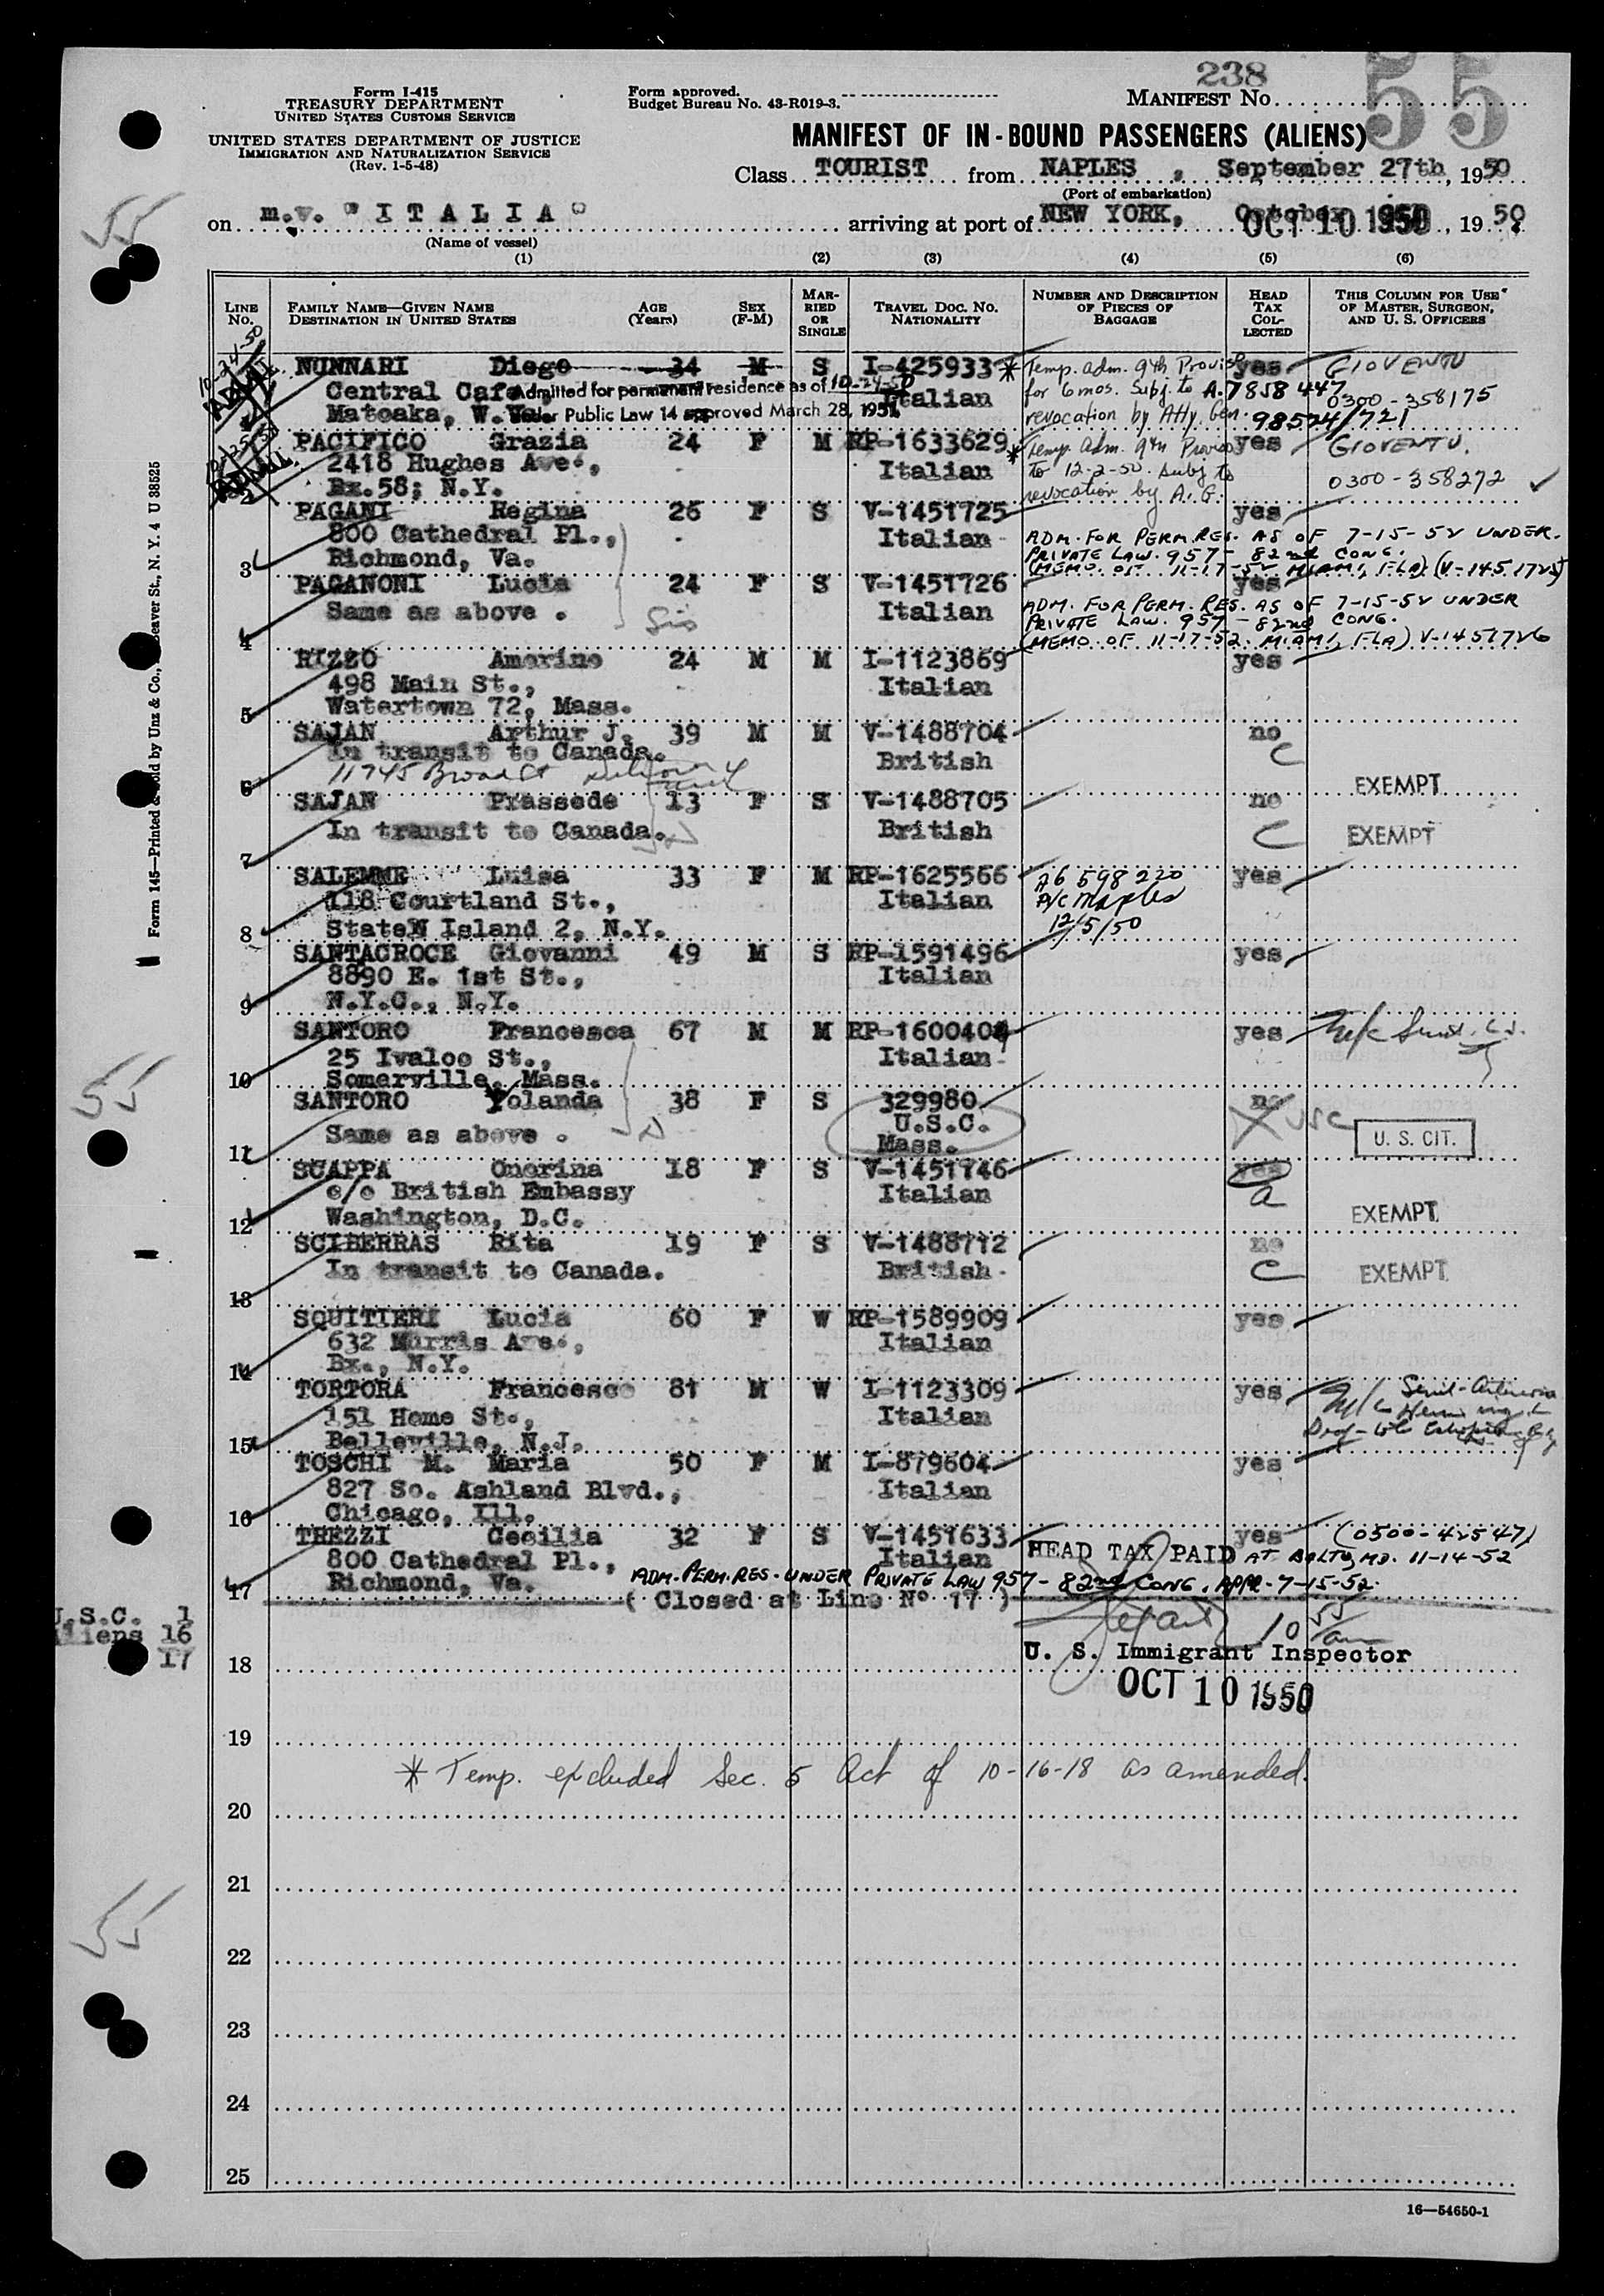 238
55
Form I-415
TREASURY DEPARTMENT
UNITED STATES CUSTOMS SERVICE
UNITED STATES DEPARTMENT OF JUSTICE
IMMIGRATION AND NATURALIZATION SERVICE
(Rev. 1-5-48)
Form approved.
Budget Bureau No. 43-R019-3.
MANIFEST No.
MANIFEST OF IN-BOUND PASSENGERS (ALIENS)
Class TOURIST from NAPLES, September 27th, 1950
(Port of embarkation)
on m.v. "ITALIA" arriving at port of NEW YORK, October OCT 10 1950, 1950
(Name of vessel)
55
(1) (2) (3) (4) (5) (6)
LINE No. FAMILY NAME—GIVEN NAME DESTINATION IN UNITED STATES AGE (Years) SEX (F-M) MARRIED OR SINGLE TRAVEL DOC. No. NATIONALITY NUMBER AND DESCRIPTION OF PIECES OF BAGGAGE HEAD TAX COLLECTED THIS COLUMN FOR USE OF MASTER, SURGEON, AND U. S. OFFICERS
10-24-50
NUNNARI Diego 34 M S I-425933 * Temp. adm. 9th Proviso yes GIOVENTU
Central Cafe Admitted for permanent residence as of 10-24-50 Italian for 6 mos. Subj. to A.7858447 0300-358175
Matoaka, W. Va. Under Public Law 14 approved March 28, 1951 revocation by Atty Gen. 98524/721
PACIFICO Grazia 24 F M RP-1633629 * Temp. Adm. 9th Proviso yes GIOVENTU.
2418 Hughes Ave., Italian to 12-2-50. Subj to 0300-358272
2 Bx.58; N.Y. revocation by A.G.
PAGANI Regina 26 F S V-1451725 yes
800 Cathedral Pl., Italian ADM. FOR PERM. RES. AS OF 7-15-52 UNDER.
3 Richmond, Va. PRIVATE LAW. 957- 82nd CONG.
(MEMO OF 11-17-52 MIAMI, FLA) (V-1451725)
PAGANONI Lucia 24 F S V-1451726 yes
Same as above. Italian ADM. FOR PERM. RES. AS OF 7-15-52 UNDER
Sis PRIVATE LAW. 957 - 82nd CONG.
4 (MEMO OF 11-17-52. MIAMI, FLA) V-1451726
RIZZO Amerino 24 M M I-1123869 yes
498 Main St., Italian
5 Watertown 72, Mass.
SAJAN Arthur J. 39 M M V-1488704 no
In transit to Canada. British C
6 11745 Broad St EXEMPT
SAJAN Prassede 13 F S V-1488705 no
7 In transit to Canada. British C EXEMPT
SALEMME Luisa 33 F M RP-1625566 A6 598 220 yes
118 Courtland St., Italian Naples
8 StateN Island 2, N.Y. 12/5/50
SANTACROCE Giovanni 49 M S RP-1591496 yes
8890 E. 1st St., Italian
9 N.Y.C., N.Y.
SANTORO Francesca 67 M M RP-1600404 yes
25 Ivaloo St., Italian
10 Somerville, Mass.
SANTORO Yolanda 38 F S 329980 no USC
Same as above. U.S.C. U. S. CIT.
11 Mass.
SCAPPA Onorina 18 F S V-1451746 yes
c/o British Embassy Italian a
12 Washington, D.C. EXEMPT
SCIBERRAS Rita 19 F S V-1488712 no
13 In transit to Canada. British C EXEMPT
SQUITIERI Lucia 60 F W RP-1589909 yes
632 Morris Ave., Italian
14 Bx., N.Y.
TORTORA Francesco 81 M W I-1123309 yes
151 Home St., Italian
15 Belleville, N.J.
TOSCHI M. Maria 50 F M I-879604 yes
827 So. Ashland Blvd., Italian
16 Chicago, Ill.
TREZZI Cecilia 32 F S V-1451633 yes (0500-42547)
800 Cathedral Pl., Italian HEAD TAX PAID AT BALTO, MD. 11-14-52
17 Richmond, Va. ADM. PERM. RES. UNDER PRIVATE LAW 957- 82nd CONG. APPR. 7-15-52.
(Closed at Line Nº 17)
U.S.C. 1
Aliens 16
17
10 55 am
U. S. Immigrant Inspector
18 OCT 10 1950
19
* Temp. excluded Sec. 5 Act of 10-16-18 as amended.
20
21
22
23
24
25
55
55
Form 145—Printed & Sold by Unz & Co., Beaver St., N. Y. 4 U 38525
16—54650-1